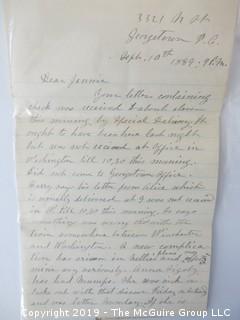 3321 N St.
Georgetown D.C.
Sept. 10th 1889. 9 P.M.
Dear Jennie
Your letter containing
check was received I about eleven
this morning by Special Delivery. It
ought to have been here last night
but was not received at Office in
Washington till 10.30 this morning.
Did not come to Georgetown Office.
Harry say his letter from Alice which
is usually delivered at 9 was not received
till 10.30 this morning. So says
something was wrong with the
train somewhere between Winchester
and Washington. A new complica
tion has arisen in Nellie's plans and
mine very seriously. Anna
has had Mumps. She was
taken out with that disease Friday
and was better Monday. If she is
Copyright 2019 - The Gray Market